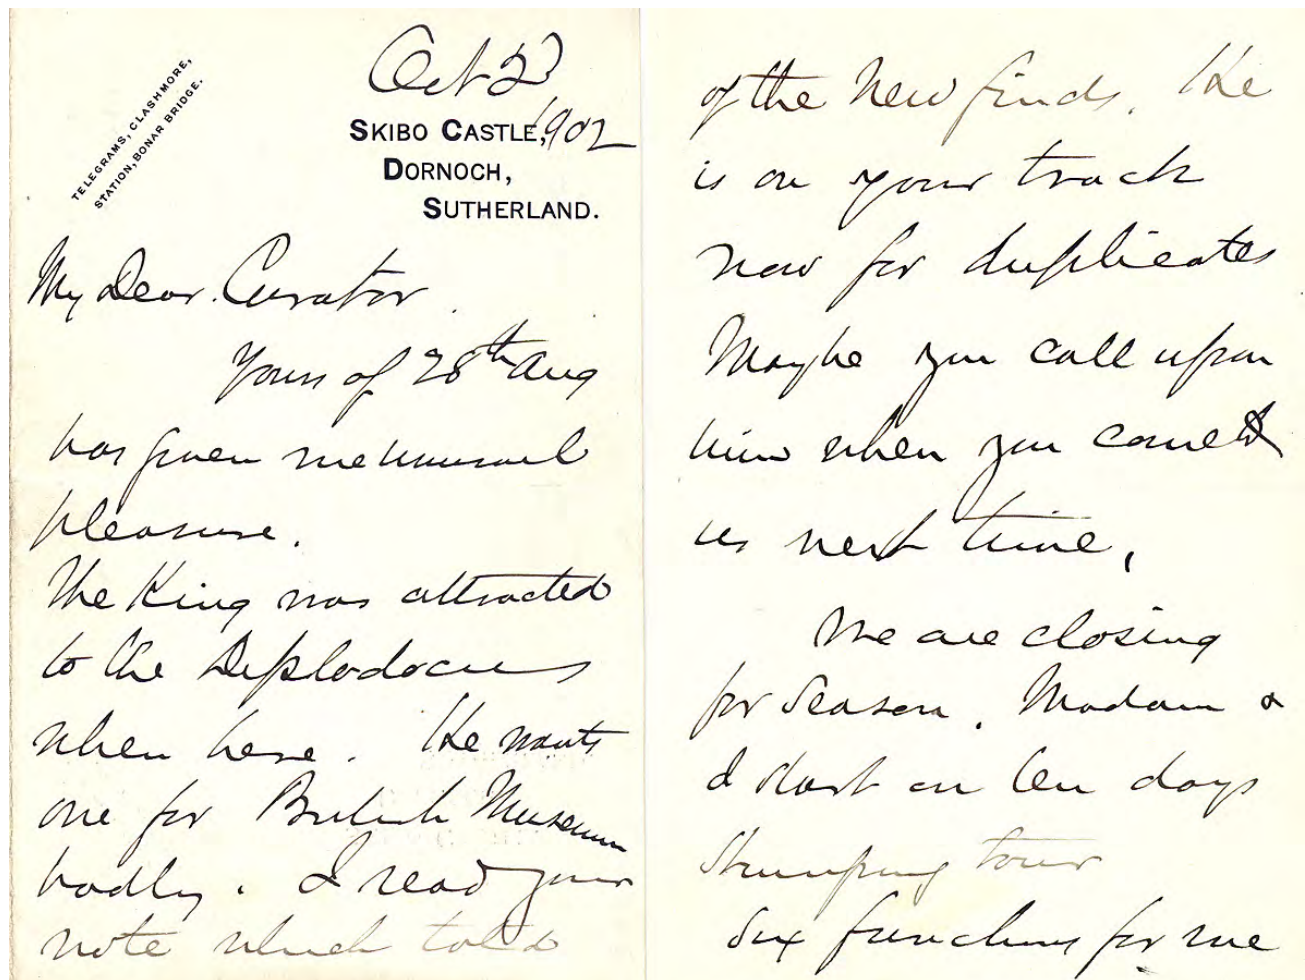 TELEGRAMS, CLASHMORE,
STATION, BONAR BRIDGE.
Oct 2
SKIBO CASTLE, 1902
DORNOCH,
SUTHERLAND.
My Dear Curator
Yours of 28th Aug
has given me unusual
pleasure.
The King was attracted
to the Diplodocus
when here. He wants
one for British Museum
badly. I read your
note which told
of the new finds. He
is on your track
now for duplicates
Maybe you call upon
him when you come to
us next time,
We are closing
for Season. Madam &
I start on ten days
Stumping tour
Six functions for me